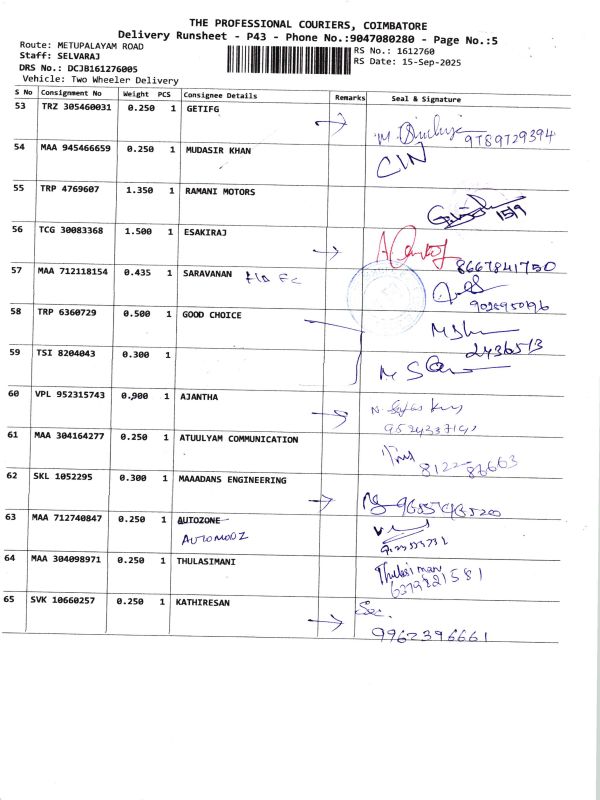 THE PROFESSIONAL COURIERS, COIMBATORE
Delivery Runsheet - P43 - Phone No.:9047080280 - Page No.:5
Route: METUPALAYAM ROAD
RS No.: 1612760
Staff: SELVARAJ
RS Date: 15-Sep-2025
DRS No.: DCJB161276005
Vehicle: Two Wheeler Delivery
S No Consignment No Weight PCS Consignee Details Remarks Seal & Signature
53 TRZ 305460031 0.250 1 GETIFG
9789729394
54 MAA 945466659 0.250 1 MUDASIR KHAN
55 TRP 4769607 1.350 1 RAMANI MOTORS
15/9
56 TCG 30083368 1.500 1 ESAKIRAJ
8667841750
57 MAA 712118154 0.435 1 SARAVANAN
58 TRP 6360729 0.500 1 GOOD CHOICE
59 TSI 8204043 0.300 1
60 VPL 952315743 0.900 1 AJANTHA
61 MAA 304164277 0.250 1 ATUULYAM COMMUNICATION
62 SKL 1052295 0.300 1 MAAADANS ENGINEERING
63 MAA 712740847 0.250 1 AUTOZONE
AUTOMODZ
64 MAA 304098971 0.250 1 THULASIMANI
Thulasimani
6379821581
65 SVK 10660257 0.250 1 KATHIRESAN
9962396661